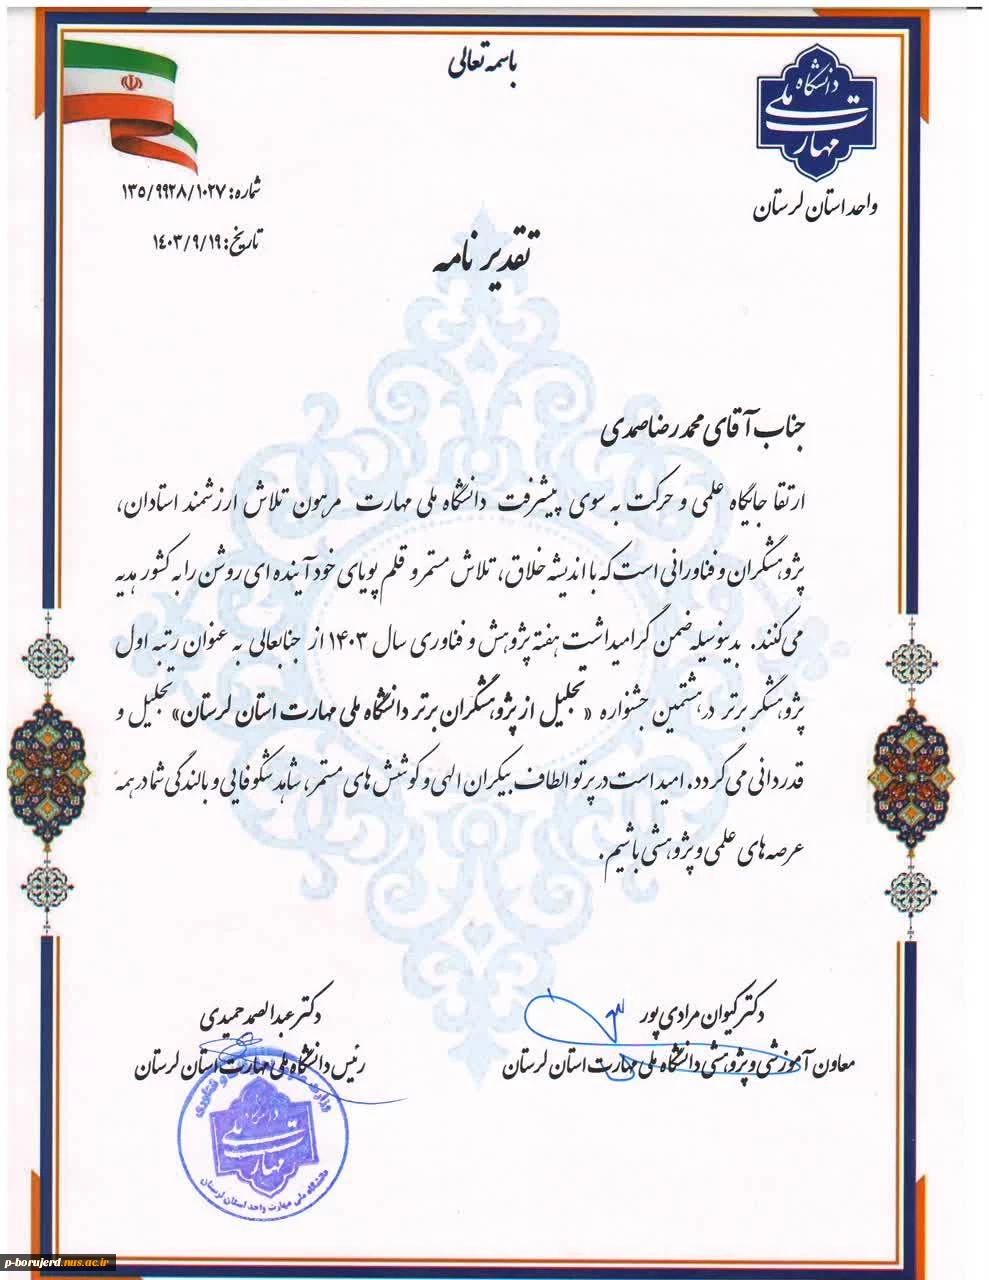 باسمه تعالی
دانشگاه
ملی
مهارت
واحد استان لرستان
شماره: ۱۳۵/۹۹۲۸/۱۰۲۷
تاریخ: ۱٤۰۳/۹/۱۹
تقدیر نامه
جناب آقای محمد رضا صمدی
ارتقا جایگاه علمی و حرکت به سوی پیشرفت دانشگاه ملی مهارت مرهون تلاش ارزشمند استادان،
پژوهشگران و فناورانی است که با اندیشه خلاق، تلاش مستمر و قلم پویای خود آینده ای روشن را به کشور هدیه
می‌کنند. بدینوسیله ضمن گرامیداشت هفته پژوهش و فناوری سال ۱۴۰۳ از جنابعالی به عنوان رتبه اول
پژوهشگر برتر در هشتمین جشنواره «تجلیل از پژوهشگران برتر دانشگاه ملی مهارت استان لرستان» تجلیل و
قدردانی می گردد. امید است در پرتو الطاف بیکران الهی و کوشش های مستمر، شاهد شکوفایی و بالندگی شما در همه
عرصه های علمی و پژوهشی باشیم.
دکتر کیوان مرادی پور
معاون آموزشی و پژوهشی دانشگاه ملی مهارت استان لرستان
دکتر عبدالصمد حمیدی
رئیس دانشگاه ملی مهارت استان لرستان
دانشگاه
ملی
مهارت
دانشگاه ملی مهارت واحد استان لرستان
p-borujerd.nus.ac.ir